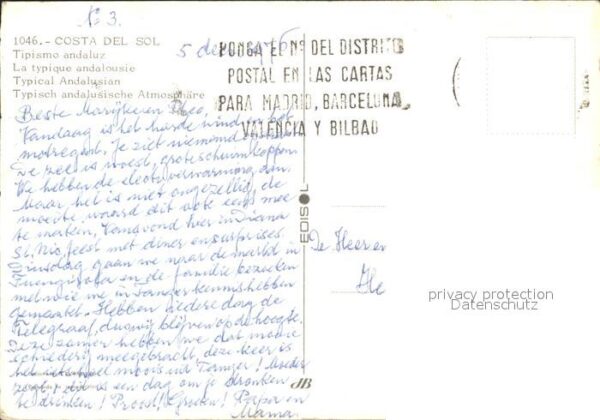 No 3.
1046.- COSTA DEL SOL
Tipismo andaluz
La typique andalousie
Typical Andalusian
Typisch andalusische Atmosphäre
5 dec 1975
PONGA EL Nº DEL DISTRITO
POSTAL EN LAS CARTAS
PARA MADRID, BARCELONA,
VALENCIA Y BILBAO
Beste Marijke en Theo,
Vandaag is het harde wind en het
motregent. Je ziet niemand
De zee is woest, grote schuimkoppen.
We hebben de electr. verwarming aan.
Maar het is niet ongezellig, de
moeite waard dit ook eens mee
te maken. Vanavond hier in Diana
St. Nic. feest met diner en surprises
Dinsdag gaan we naar de markt in
Fuengirola en de familie bezoeken
met wie we in Tanger kennis hebben
gemaakt. Hebben iedere dag de
Telegraaf, dus wij blijven op de hoogte.
Deze zomer hebben we dat mooie
meegebracht, deze keer is
het iets heel moois uit Tanger! Moeder
zegt: dit is een dag om je dronken
te drinken! Proost! Groeten! Papa en
Mama
EDISOL
De Heer en
He
JB
privacy protection
Datenschutz